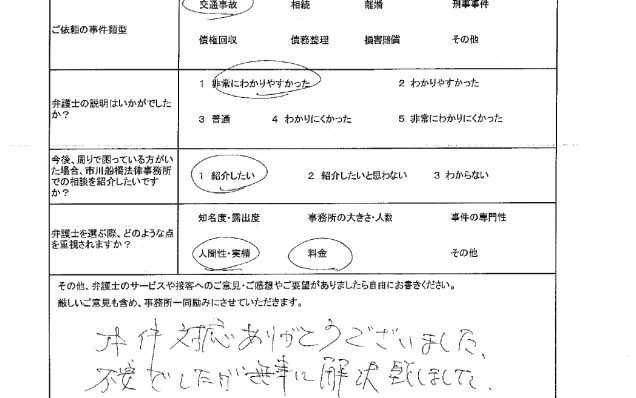 ご依頼の事件類型
交通事故 相続 離婚 刑事事件
債権回収 債務整理 損害賠償 その他
弁護士の説明はいかがでしたか?
1 非常にわかりやすかった 2 わかりやすかった
3 普通 4 わかりにくかった 5 非常にわかりにくかった
今後、周りで困っている方がい
た場合、市川船橋法律事務所
での相談を紹介したいです
か?
1 紹介したい 2 紹介したいと思わない 3 わからない
弁護士を選ぶ際、どのような点
を重視されますか?
知名度・露出度 事務所の大きさ・人数 事件の専門性
人間性・実績 料金 その他
その他、弁護士のサービスや接客へのご意見・ご感想やご要望がありましたら自由にお書きください。
厳しいご意見も含め、事務所一同励みにさせていただきます。
本件対応ありがとうございました。
不安でしたが無事に解決致しました。